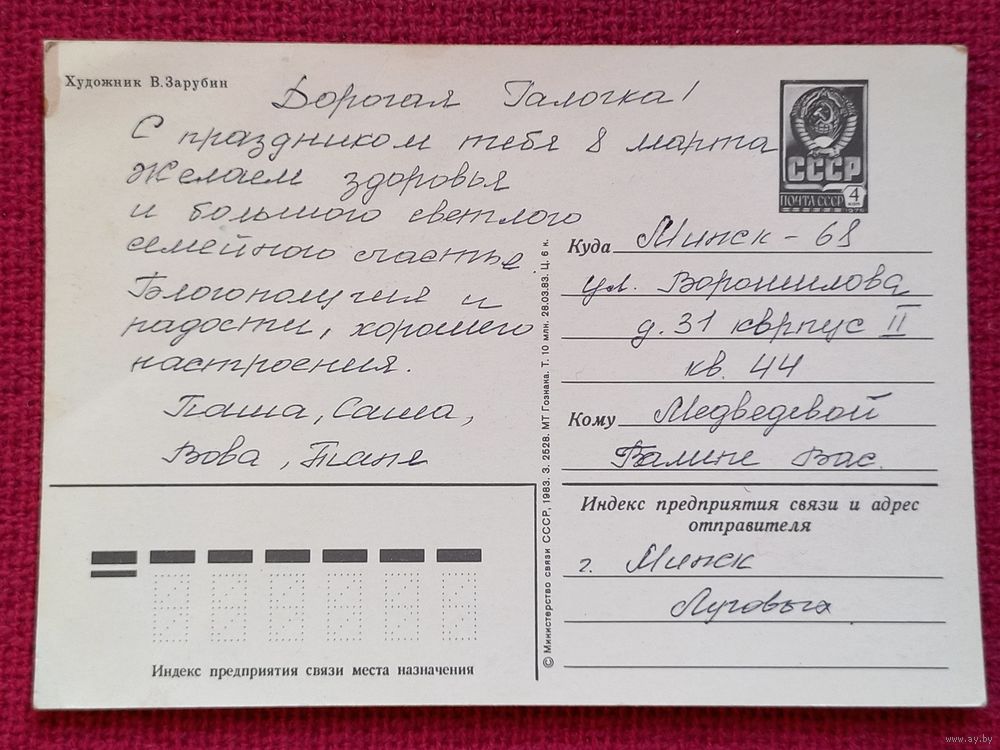 Художник В.Зарубин
Дорогая Галочка!
С праздником тебя 8 марта
Желаем здоровья
и большого светлого
семейного счастья.
Благополучия и
радости, хорошего
настроения.
Паша, Саша,
Вова, Таня
СССР
ПОЧТА СССР
4
коп
1978
Куда Минск - 68
ул. Ворошилова
д. 31 кврпус II
кв. 44
Кому Медведевой
Галине Вас.
Индекс предприятия связи и адрес
отправителя
г. Минск
Луговых
Индекс предприятия связи места назначения
© Министерство связи СССР, 1983. З. 2528. МТ Гознака. Т. 10 млн. 28.03.83. Ц. 6 к.
www.ay.by